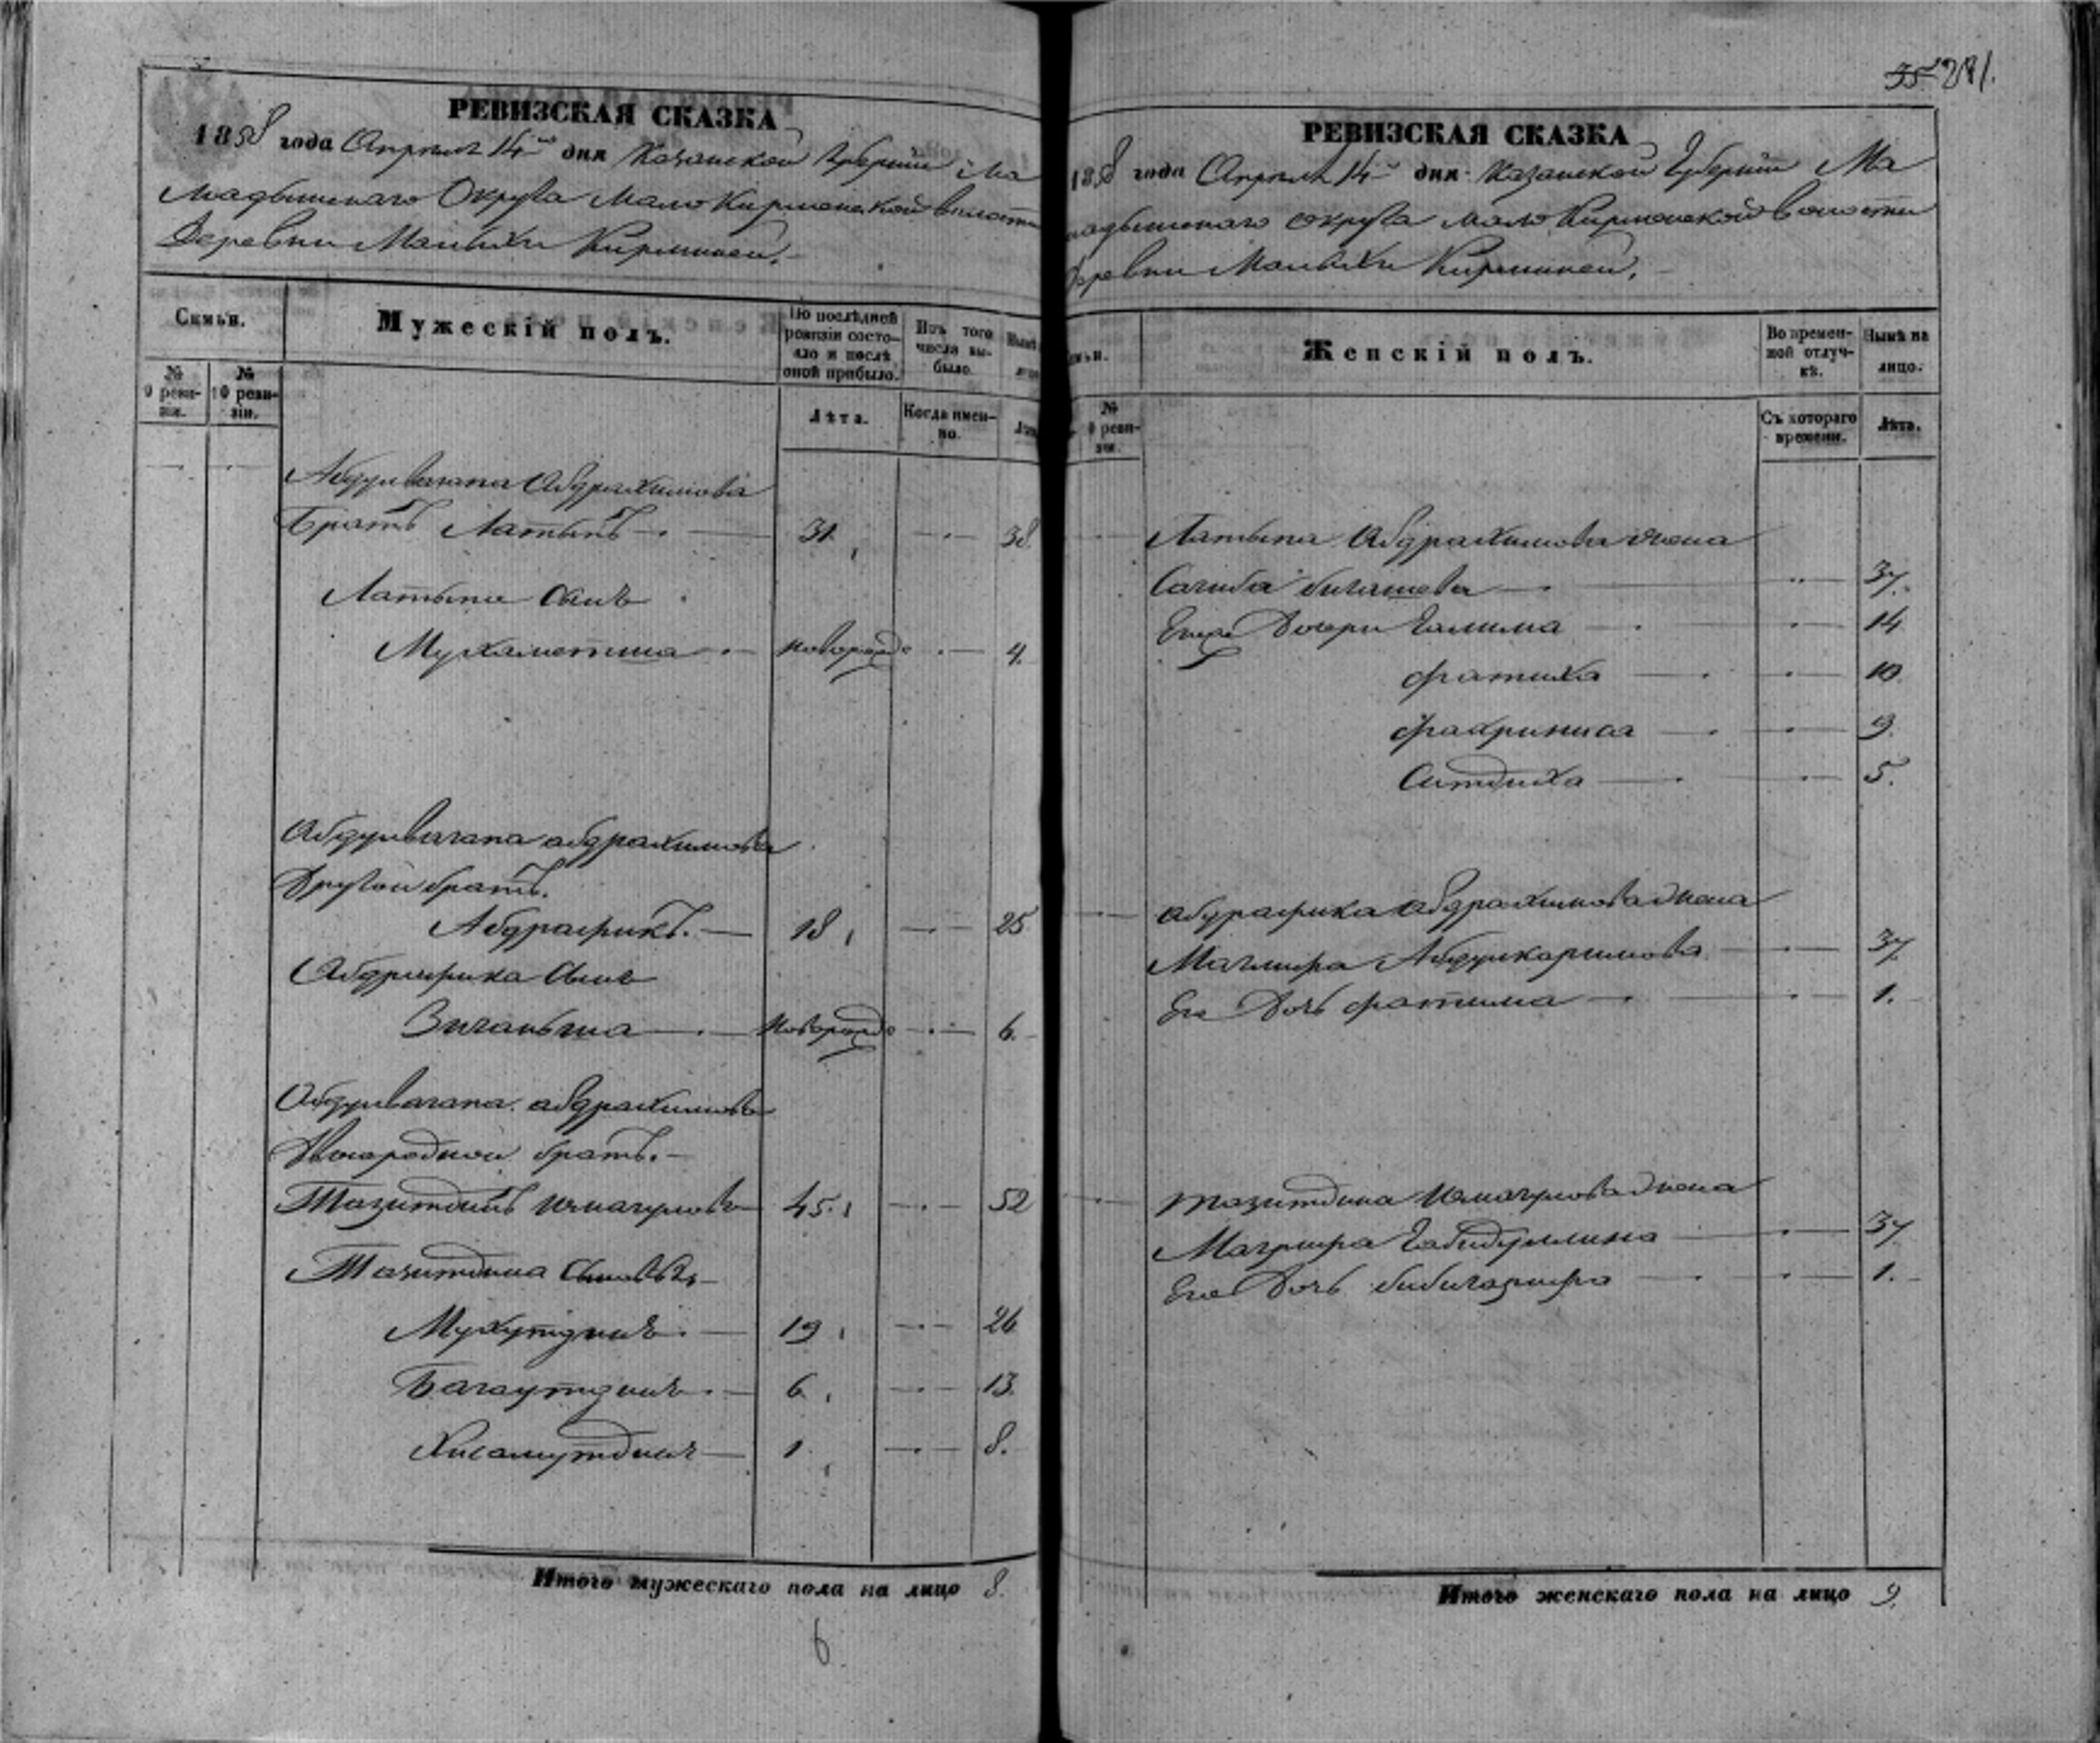 35 281.
РЕВИЗСКАЯ СКАЗКА
1858 года Апреля 14го дня Казанской Губернiи Ма
мадышскаго Округа Мало Кирменской волости
Деревни Малыхъ Кирменей.
Семьи.
Мужескій полъ.
По послѣдней ревизіи состояло и послѣ оной прибыло.
Изъ того числа выбыло.
№ 9 ревизіи.
№ 10 ревизіи.
Лѣта.
Когда именно.
Абдулвагапа Абдрахимова
Братъ Латыпъ 31. 38.
Латыпа сынъ
Мухаметша новорожд 4.
Абдулвагапа абдрахимова
Другой братъ.
Абдрафикъ. 18 25
Абдрафика сынъ
Зиганьша новорожд 6.
Абдулвагапа абдрахимова
Двоюродной братъ.
Тазитдинъ Исмагуловъ 45. 52
Тазитдина сыновья
Мухутдинъ 19 26
Багаутдинъ 6 13.
Хисамутдинъ 1 8.
Итого мужескаго пола на лицо 8.
6
РЕВИЗСКАЯ СКАЗКА
1858 года Апреля 14го дня Казанской Губернiи Ма
мадышскаго округа мало Кирменской волости
Деревни Малыхъ Кирменей.
Женскій полъ.
Во временной отлучкѣ.
Нынѣ на лицо.
№ 10 ревизіи.
Съ котораго времени.
Лѣта.
Латыпа Абдрахимова жена
Сагиба 37.
Ихъ Дочери Галима 14
Фатиха 10
Фахриниса 9.
Ситдиха 5.
абдрафика абдрахимова жена
Магмира Абдулкаримова 37
Его Дочь Фатима 1.
Тазитдина Исмагулова жена
Магмира Габидуллина 37
Его Дочь 1.
Итого женскаго пола на лицо 9.